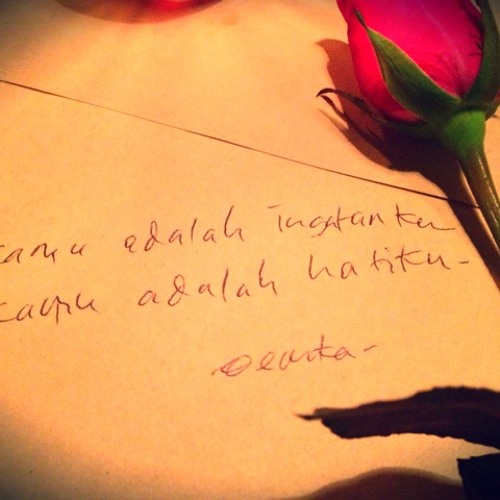 kamu adalah ingatanku
kamu adalah hatiku-